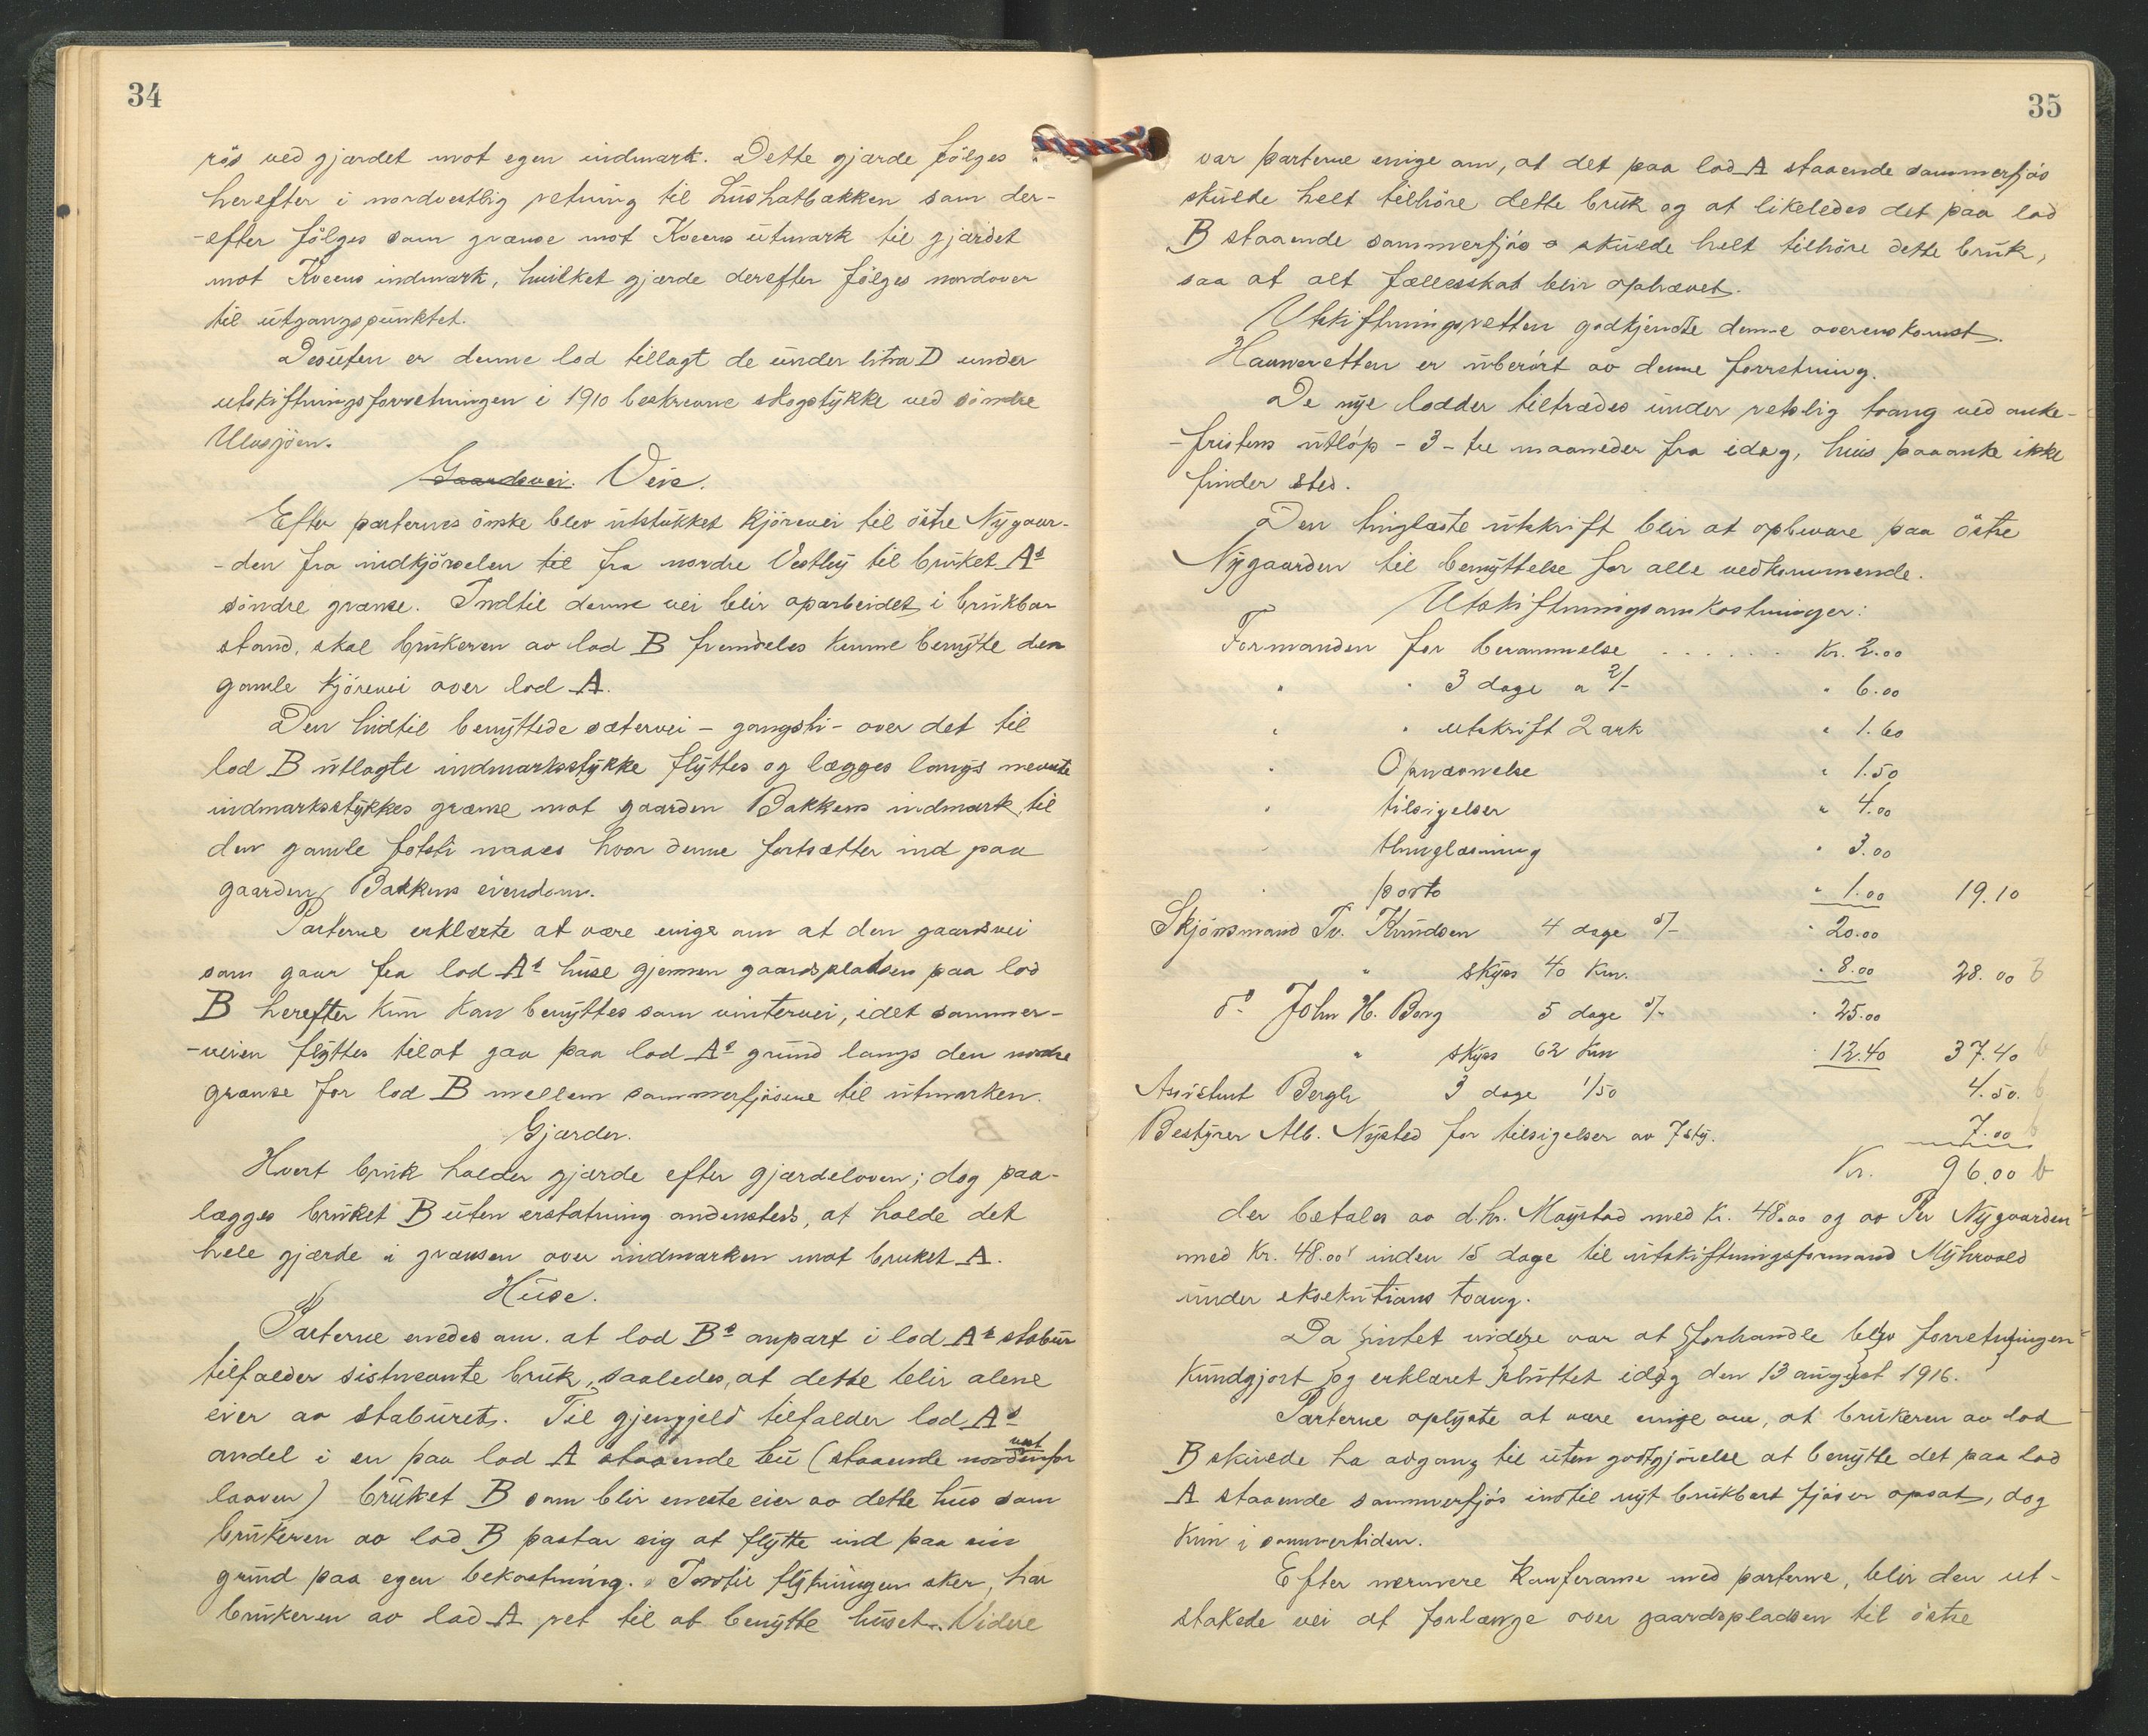 34
rös ved gjærdet mot egen indmark. Dette gjærde følges
herefter i nordvestlig retning til Lushatbækken som der-
-efter følges som grænse mot Kveens utmark til gjærdet
mot Kveens indmark, hvilket gjærde derefter følges nordover
til utgangspunktet.
Desuten er denne lod tillagt de under litra D under
utskiftningsforretningen i 1910 beskrevne skogstykke ved söndre
Ulvsjöen.
Gaardsvei. Veie.
Efter parternes önske blev utstukket kjörevei til östre Nygaar-
-den fra indkjörselen til fra nordre Vestby til bruket As
söndre grænse. Indtil denne vei blir oparbeidet i brukbar
stand, skal brukeren av lod B fremdeles kunne benytte den
gamle kjörevei over lod A.
Den hidtil benyttede sætervei - gangsti - over det til
lod B utlagte indmarksstykke flyttes og lægges langs nevnte
indmarksstykkes grænse mot gaarden Bakkens indmark, til
den gamle fotsti naaes hvor denne fortsætter ind paa
gaarden Bakkens eiendom.
Parterne erklærte at være enige om at den gaardsvei
som gaar fra lod As huse gjennem gaardspladsen paa lod
B herefter kun kan benyttes som vintervei, idet sommer-
-veien flyttes til at gaa paa lod As grund langs den nordre
grænse for lod B mellem sommerfjösene til utmarken.
Gjærder.
Hvert bruk holder gjærde efter gjærdeloven; dog paa-
lægges bruket B uten erstatning andensteds, at holde det
hele gjærde i grænsen over indmarken mot bruket A.
Huse.
Parterne enedes om. at lod Bs anpart i lod As stabur
tilfalder sistnevnte bruk, saaledes, at dette blir alene
eier av staburet. Til gjengjeld tilfalder lod As
andel i en paa lod A staaende bu (staaende nordenfor
vest
laaven) bruket B som blir eneste eier av dette hus som
brukeren av lod B paatar sig at flytte ind paa sin
grund paa egen bekostning. Indtil flytningen sker, har
brukeren av lod A ret til at benytte huset. Videre
35
var parterne enige om, at det paa lod A staaende sommerfjös
skulde helt tilhöre dette bruk og at likeledes det paa lod
B staaende sommerfjös skulde helt tilhöre dette bruk,
saa at alt fællesskab blir ophævet.
Utskiftningsretten godkjendte denne overenskomst.
Havneretten er uberört av denne forretning.
De nye lodder tiltrædes under retslig tvang ved anke-
-fristens utlöp - 3 - tre maaneder fra idag, hvis paaanke ikke
finder sted.
Den tinglæste utskrift blir at opbevare paa östre
Nygaarden til benyttelse for alle vedkommende.
Utskiftningsomkostninger:
Formanden for berammelse . . . . . . Kr. 2.00
" " 3 dage a 2/- " 6.00
" " utskrift 2 ark " 1.60
" Opnævnelse " 1.50
" tilsigelser " 4.00
" thinglæsning " 3.00
" porto " 1.00 19.10
Skjönsmand Tv. Knudsen 4 dage 5/- " 20.00
" skyss 40 Km. " 8.00 28.00 b
do John H. Berg 5 dage 5/- " 25.00
" skyss 62 Km " 12.40 37.40 b
Assistent Bergli 3 dage 1/50 4.50. b
Bestyrer Alb. Nysted for tilsigelser av 7 sty. 7.00 b
Kr. 96.00 b
der betales av d.hr. Moystad med Kr. 48.00 og av Per Nygaarden
med Kr. 48.00 inden 15 dage til utskiftningsformand Myhrvold
under eksekutions tvang.
Da intet videre var at forhandle blev forretningen
kundgjort og erklæret sluttet idag den 13 august 1916.
Parterne oplyste at være enige om, at brukeren av lod
B skulde ha adgang til uten godtgjörelse at benytte det paa lod
A staaende sommerfjös indtil nyt brukbart fjös er opsat, dog
kun i sommertiden.
Efter nermere konferanse med parterne, blir den ut-
stakede vei at forlænge over gaardspladsen til östre